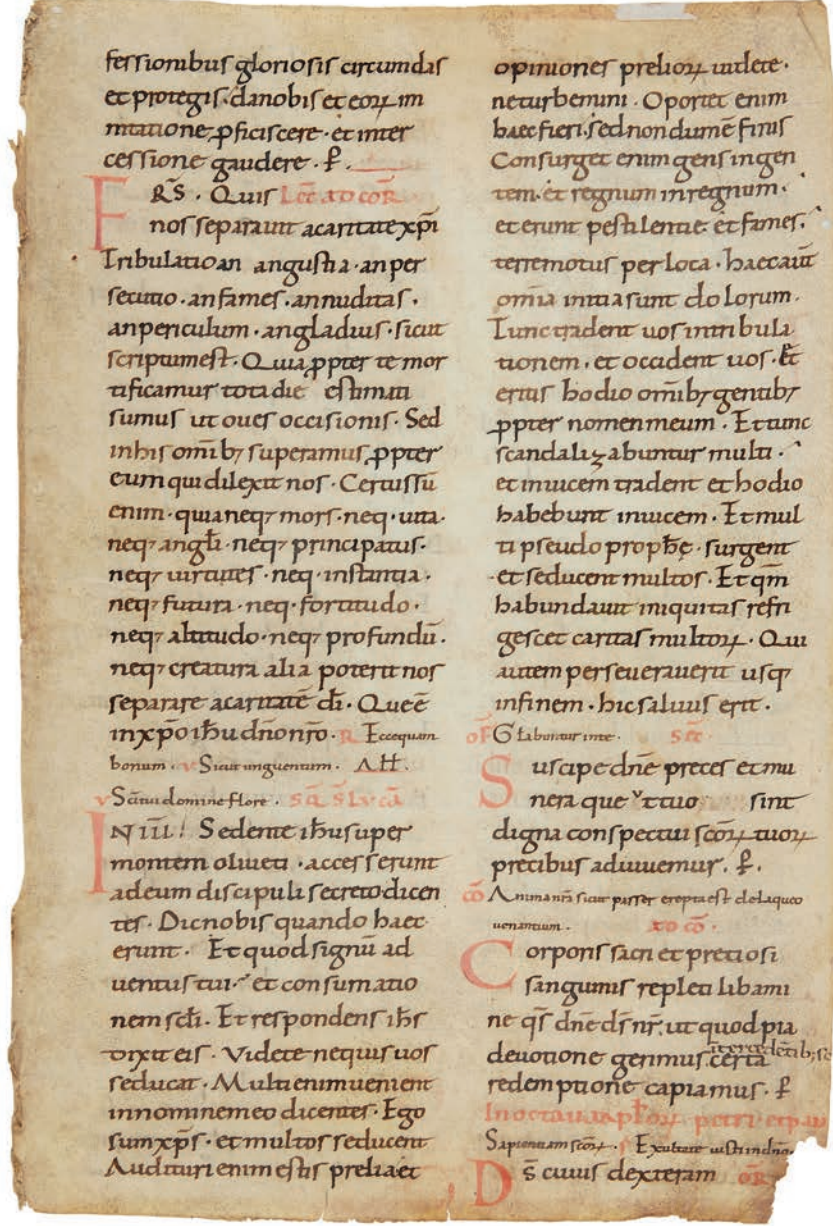 fessionibus gloriosis circumdas
et protegis. da nobis et eoꝝ im
mitatione, ꝓficiscere· et inter
cessione gaudere· P̄.
FRS̄· Quis Lec̄ ad cor̄
nos separavit a caritate xp̄i
Tribulatio an angustia· an per
secutio· an fames· an nuditas·
an periculum· an gladius· sicut
scriptum est· Quia ꝓpter te mor
tificamur tota die estimati
sumus ut oues occisionis· Sed
in his omib; superamus ꝓpter
eum qui dilexit nos· Certus sū
enim· quia neq; mors· neq· uita·
neq; angl̄i· neq; principatus·
neq; uirtutes· neq· instantia·
neq; futura· neq· fortitudo·
neq; altitudo· neq; profundū·
neq; creatura alia poterit nos
separare a caritatē dī· Que ē
in xp̄o ihū dn̄o nr̄o· R Ecce quam
bonum· v Sicut unguentum· All̄.
v Sc̄i tui domine flore· sc̄ā s̄ Lucā
IN ill̄! Sedente ihū super
montem oliueti· accesserunt
ad eum discipuli secreto dicen
tes· Dic nobis quando haec
erunt· Et quod signū ad
uentus tui· et consumatio
nem scl̄i· Et respondens ihs̄
dixit eis· Videte ne quis uos
seducat· Multi enim uenient
in nomine meo dicentes· Ego
sum xp̄s· et multos seducent
Audituri enim estis prelia et
opiniones prelioꝝ uidete·
ne turbemini· Oportet enim
haec fieri· sed nondum ē finis
Consurget enim gens in gen
tem· et regnum in regnum·
et erunt pestilentie· et fames·
terremotus per loca· haec aūt
om̄ia initia sunt dolorum·
Tunc tradent uos in tribula
tionem· et occident uos· Et
eritis hodio om̄ib; gentib;
ꝓpter nomen meum· Et tunc
scandalizabuntur multi·
et inuicem tradent et hodio
habebunt inuicem· Et mul
ti pseudo prophę· surgent
et seducent multos· Et qm̄
habundauit iniquitas refri
gescet caritas multoꝝ· Qui
autem perseuerauerit usq;
in finem· hic saluus erit·
of̄ Gloriabuntur in te· sēc
Suscipe dn̄e preces et mu
nera que ut tuo sint
digna conspectui scōꝝ tuoꝝ
precibus adiuuemur· P̄.
cō Anima nr̄a sicut passer erepta est de laqueo
uenantium· ad cō·
Corporis sacri et pretiosi
sanguinis repleti libami
ne qs̄ dn̄e ds̄ nr̄· ut quod pia
deuotione gerimus· certa intercedentib; sc̄
redemptione capiamus· P̄
In octaua apl̄oꝝ petri et pau
Sapientiam scōꝝ· ps Exultate iusti in dn̄o·
Ds̄ cuius dexteram or̄